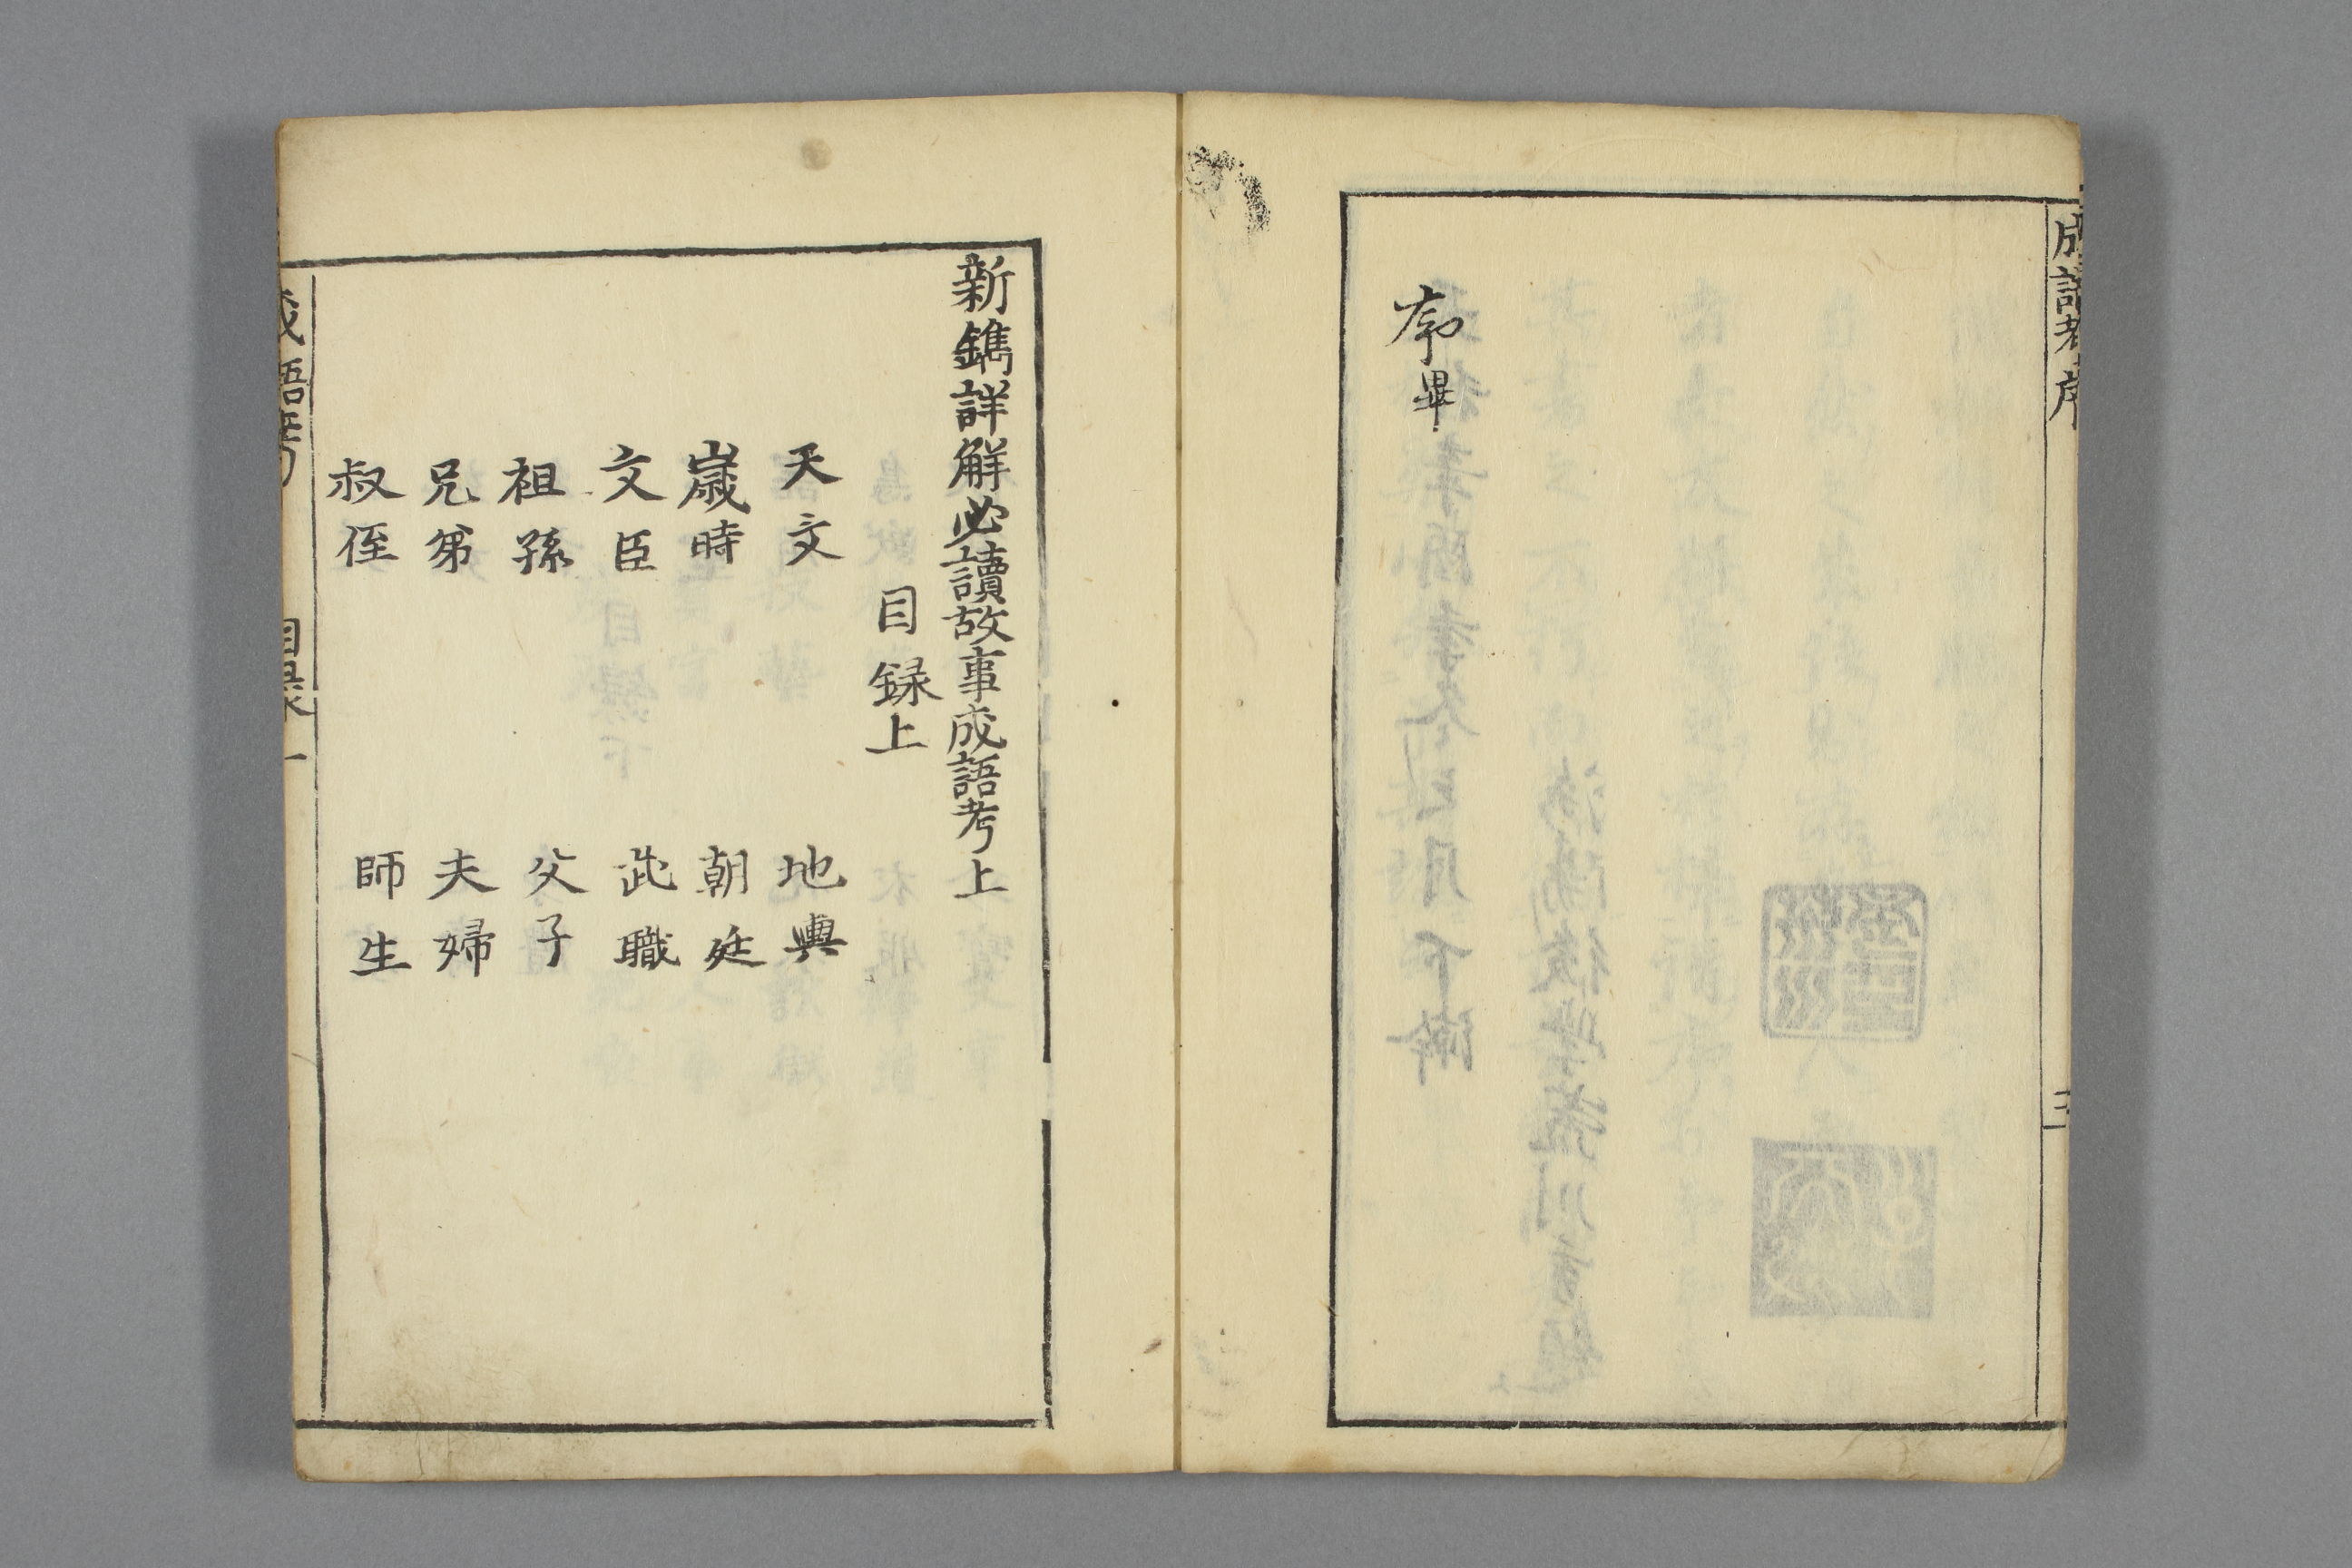 成語考序
三
序畢
新鐫詳解必讀故事成語考上
目録上
天文 地輿
歲時 朝廷
文臣 武職
祖孫 父子
兄弟 夫婦
叔侄 師生
成語考 目录 一